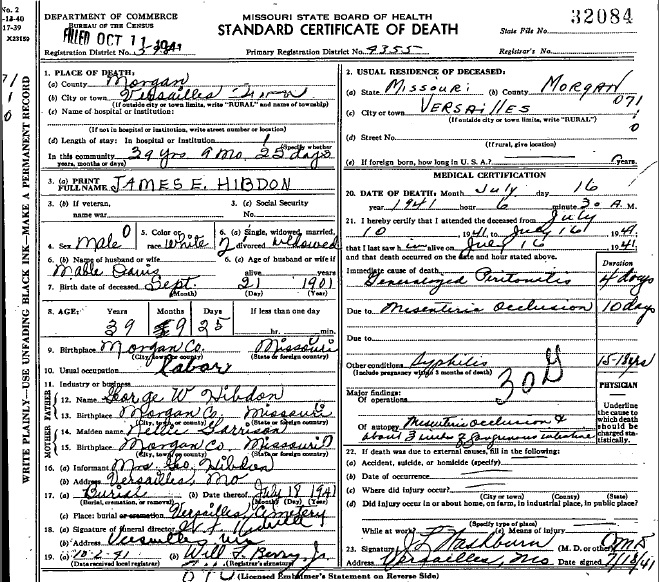 No. 2
-13-40
17-39
X23159
DEPARTMENT OF COMMERCE
BUREAU OF THE CENSUS
FILED OCT 11
MISSOURI STATE BOARD OF HEALTH
STANDARD CERTIFICATE OF DEATH
32084
State File No.
Registration District No.
Primary Registration District No. 4355
Registrar's No.
WRITE PLAINLY—USE UNFADING BLACK INK—MAKE A PERMANENT RECORD
1. PLACE OF DEATH:
(a) County Morgan
(b) City or town Versailles
(If outside city or town limits, write "RURAL" and name of township)
(c) Name of hospital or institution:
(If not in hospital or institution, write street number or location)
(d) Length of stay: In hospital or institution
(Specify whether
In this community 39 yrs 9 mo. 25 days
years, months or days)
3. (a) PRINT FULL NAME JAMES E. HIBDON
3. (b) If veteran, name war
3. (c) Social Security No.
4. Sex Male
5. Color or race White
6. (a) Single, widowed, married, divorced Widowed
6. (b) Name of husband or wife Mable Davis
6. (c) Age of husband or wife if alive years
7. Birth date of deceased Sept. 21 1901
(Month) (Day) (Year)
8. AGE: Years Months Days If less than one day
39 9 25 hr. min.
9. Birthplace Morgan Co. Missouri
(City, town, or county) (State or foreign country)
10. Usual occupation Labor
11. Industry or business
FATHER
12. Name George W Hibdon
13. Birthplace Morgan Co. Missouri
(City, town, or county) (State or foreign country)
MOTHER
14. Maiden name Nellie Garrison
15. Birthplace Morgan Co. Missouri
(City, town, or county) (State or foreign country)
16. (a) Informant Mrs. Geo. Hibdon
(b) Address Versailles, Mo
17. (a) Burial (b) Date thereof July 18 1941
(Burial, cremation, or removal) (Month) (Day) (Year)
(c) Place: burial or cremation Versailles Cemetery
18. (a) Signature of funeral director
(b) Address Versailles Mo
19. (a) 10-2-41 (b) Will T. Berry, Jr.
(Date received local registrar) (Registrar's signature)
2. USUAL RESIDENCE OF DECEASED:
(a) State Missouri (b) County MORGAN
071
(c) City or town VERSAILLES
(If outside city or town limits, write "RURAL")
(d) Street No.
(If rural, give location)
(e) If foreign born, how long in U. S. A.? years.
MEDICAL CERTIFICATION
20. DATE OF DEATH: Month July day 16
year 1941 hour 6 minute 30 A. M.
21. I hereby certify that I attended the deceased from July
10 1941 to July 16 1941
that I last saw h im alive on July 16 1941
and that death occurred on the date and hour stated above.
Duration
Immediate cause of death Generalized Peritonitis 4 days
Due to Mesenteric Occlusion 10 days
Due to
Other conditions Syphilis 15-18 yrs
(Include pregnancy within 3 months of death)
30
Major findings:
Of operations
Of autopsy Mesentric occlusion &
about 3 inches of gangrenous intestine
PHYSICIAN
Underline the cause to which death should be charged statistically.
22. If death was due to external causes, fill in the following:
(a) Accident, suicide, or homicide (specify)
(b) Date of occurrence
(c) Where did injury occur?
(City or town) (County) (State)
(d) Did injury occur in or about home, on farm, in industrial place, in public place?
(Specify type of place)
While at work? (e) Means of injury
23. Signature J L Washburn (M. D. or other)
Address Versailles, Mo Date signed 7/18/41
(Licensed Embalmer's Statement on Reverse Side)